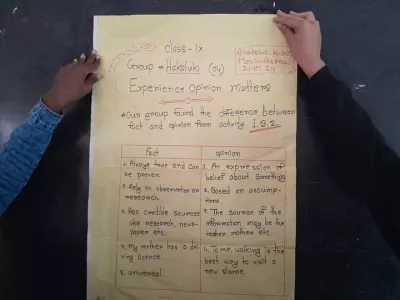 Class-IX
Group → Hakaluki (04)
Experience Opinion matters
* Our group found the difference between
fact and opinion from activity 1.3.2.
Fact
1. Always true and can
be proven.
2. Rely on observation or
research.
3. Has credible sources
like research, news-
paper etc.
4. My mother has a dri-
ving licence.
5. Universal.
opinion
1. An expression of
belief about something
2. Based on assump-
tions.
3. The source of the
information may be the
mother etc.
4. To me, walking is the
best way to visit a
new place.